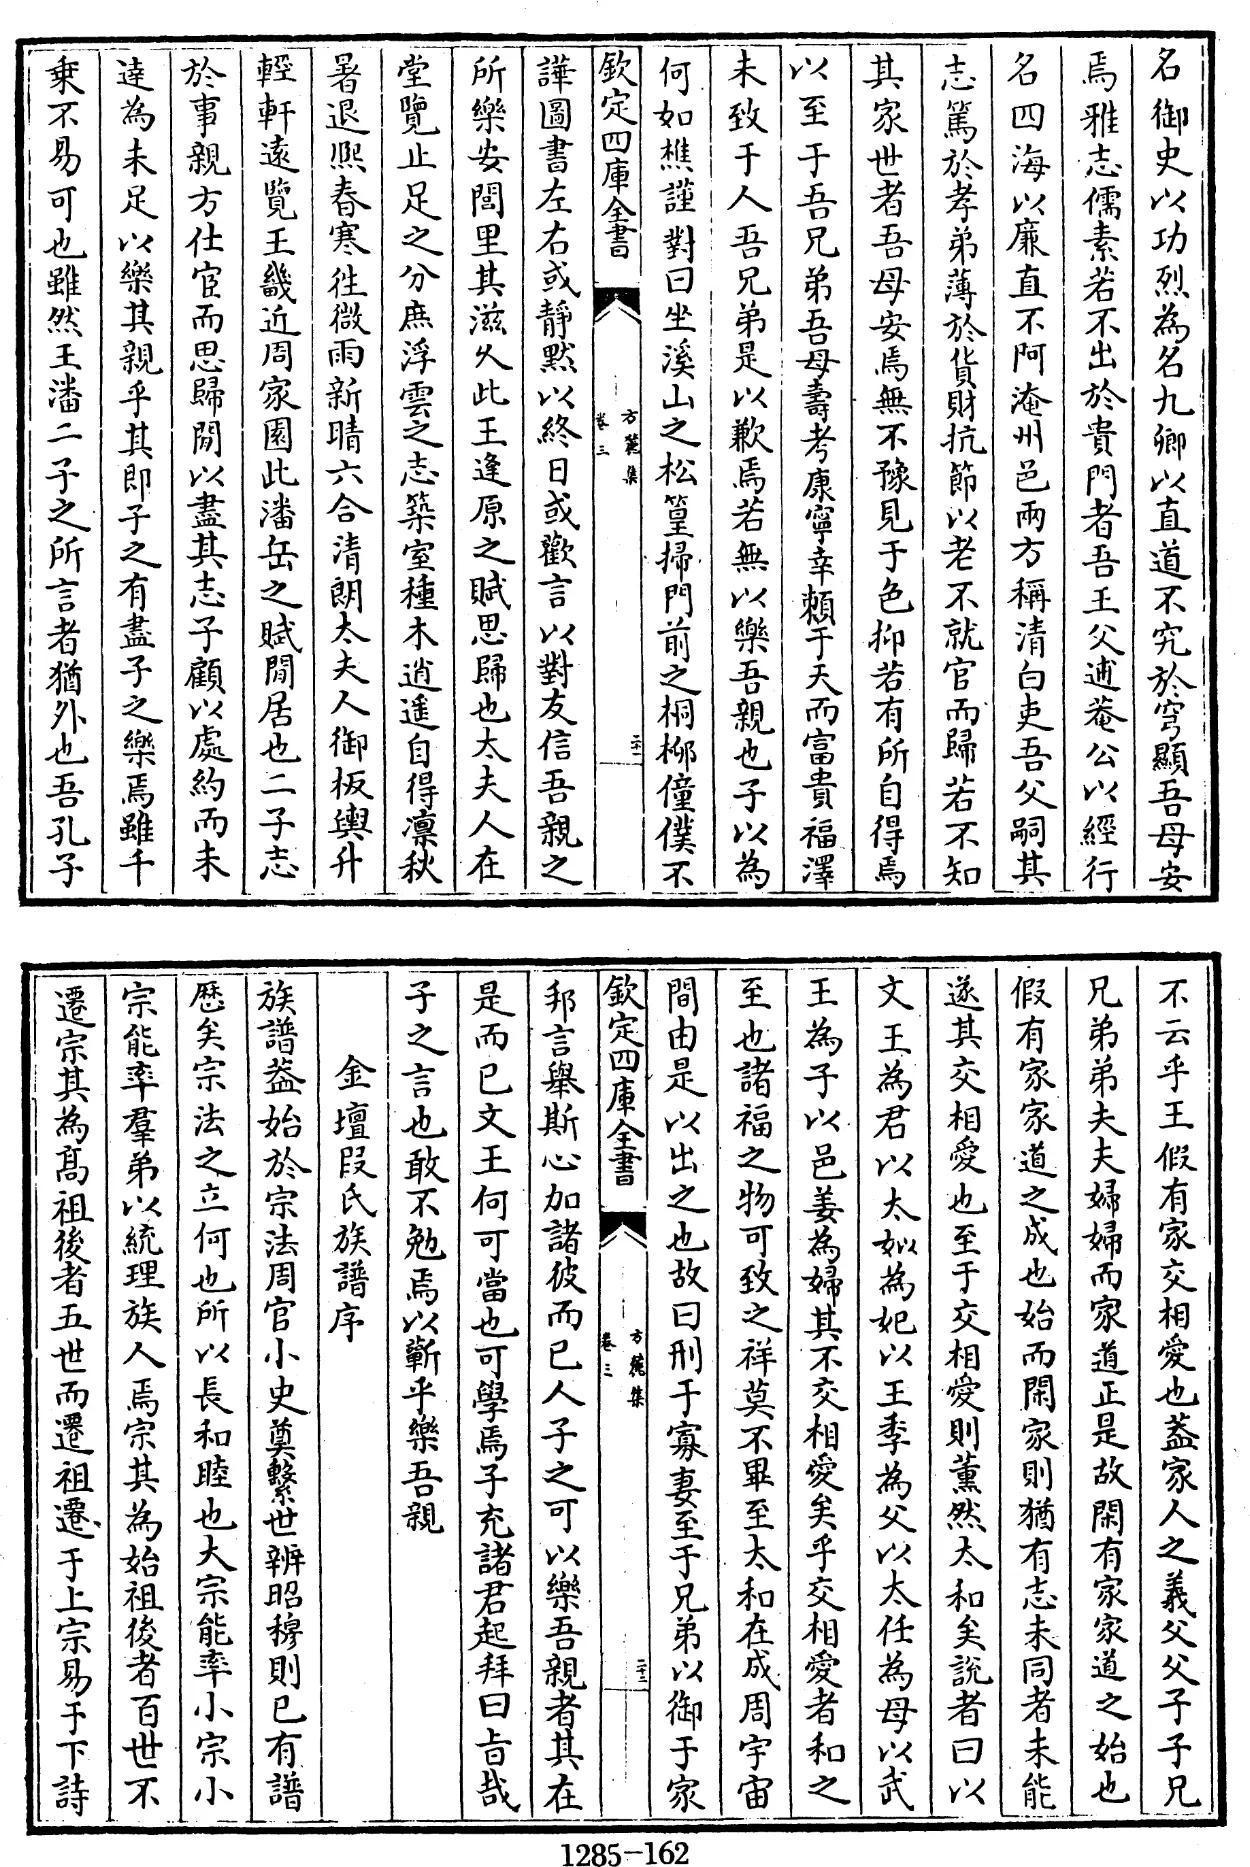 名御史以功烈為名九卿以直道不究於穹顯吾母安
焉雅志儒素若不出於貴門者吾王父逋菴公以經行
名四海以廉直不阿淹州邑兩方稱清白吏吾父嗣其
志篤於孝弟薄於貨財抗節以老不就官而歸若不知
其家世者吾母安焉無不豫見于色抑若有所自得焉
以至于吾兄弟吾母壽考康寧幸頼于天而富貴福澤
未致于人吾兄弟是以歉焉若無以樂吾親也子以為
何如樵謹對曰坐溪山之松篁掃門前之桐柳僮僕不
欽定四庫全書
方麓集
卷三
二十一
譁圖書左右或靜默以終日或歡言以對友信吾親之
所樂安閭里其滋久此王逢原之賦思歸也太夫人在
堂覽止足之分庶浮雲之志築室種木逍遥自得凛秋
暑退熈春寒徃微雨新晴六合清朗太夫人御板輿升
輕軒逺覽王畿近周家園此潘岳之賦閒居也二子志
於事親方仕宦而思歸閒以盡其志子顧以處約而未
逹為未足以樂其親乎其即子之有盡子之樂焉雖千
乗不易可也雖然王潘二子之所言者猶外也吾孔子
不云乎王假有家交相愛也葢家人之義父父子子兄
兄弟弟夫夫婦婦而家道正是故閑有家家道之始也
假有家家道之成也始而閑家則猶有志未同者未能
遂其交相愛也至于交相愛則薰然太和矣說者曰以
文王為君以太姒為妃以王季為父以太任為母以武
王為子以邑姜為婦其不交相愛矣乎交相愛者和之
至也諸福之物可致之祥莫不畢至太和在成周宇宙
間由是以出之也故曰刑于寡妻至于兄弟以御于家
欽定四庫全書
方麓集
卷三
二十二
邦言舉斯心加諸彼而已人子之可以樂吾親者其在
是而已文王何可當也可學焉子充諸君起拜曰旨哉
子之言也敢不勉焉以蘄乎樂吾親
金壇段氏族譜序
族譜葢始於宗法周官小史奠繫世辨昭穆則已有譜
歷矣宗法之立何也所以長和睦也大宗能率小宗小
宗能率羣弟以統理族人焉宗其為始祖後者百世不
遷宗其為髙祖後者五世而遷祖遷于上宗易于下詩
1285-162